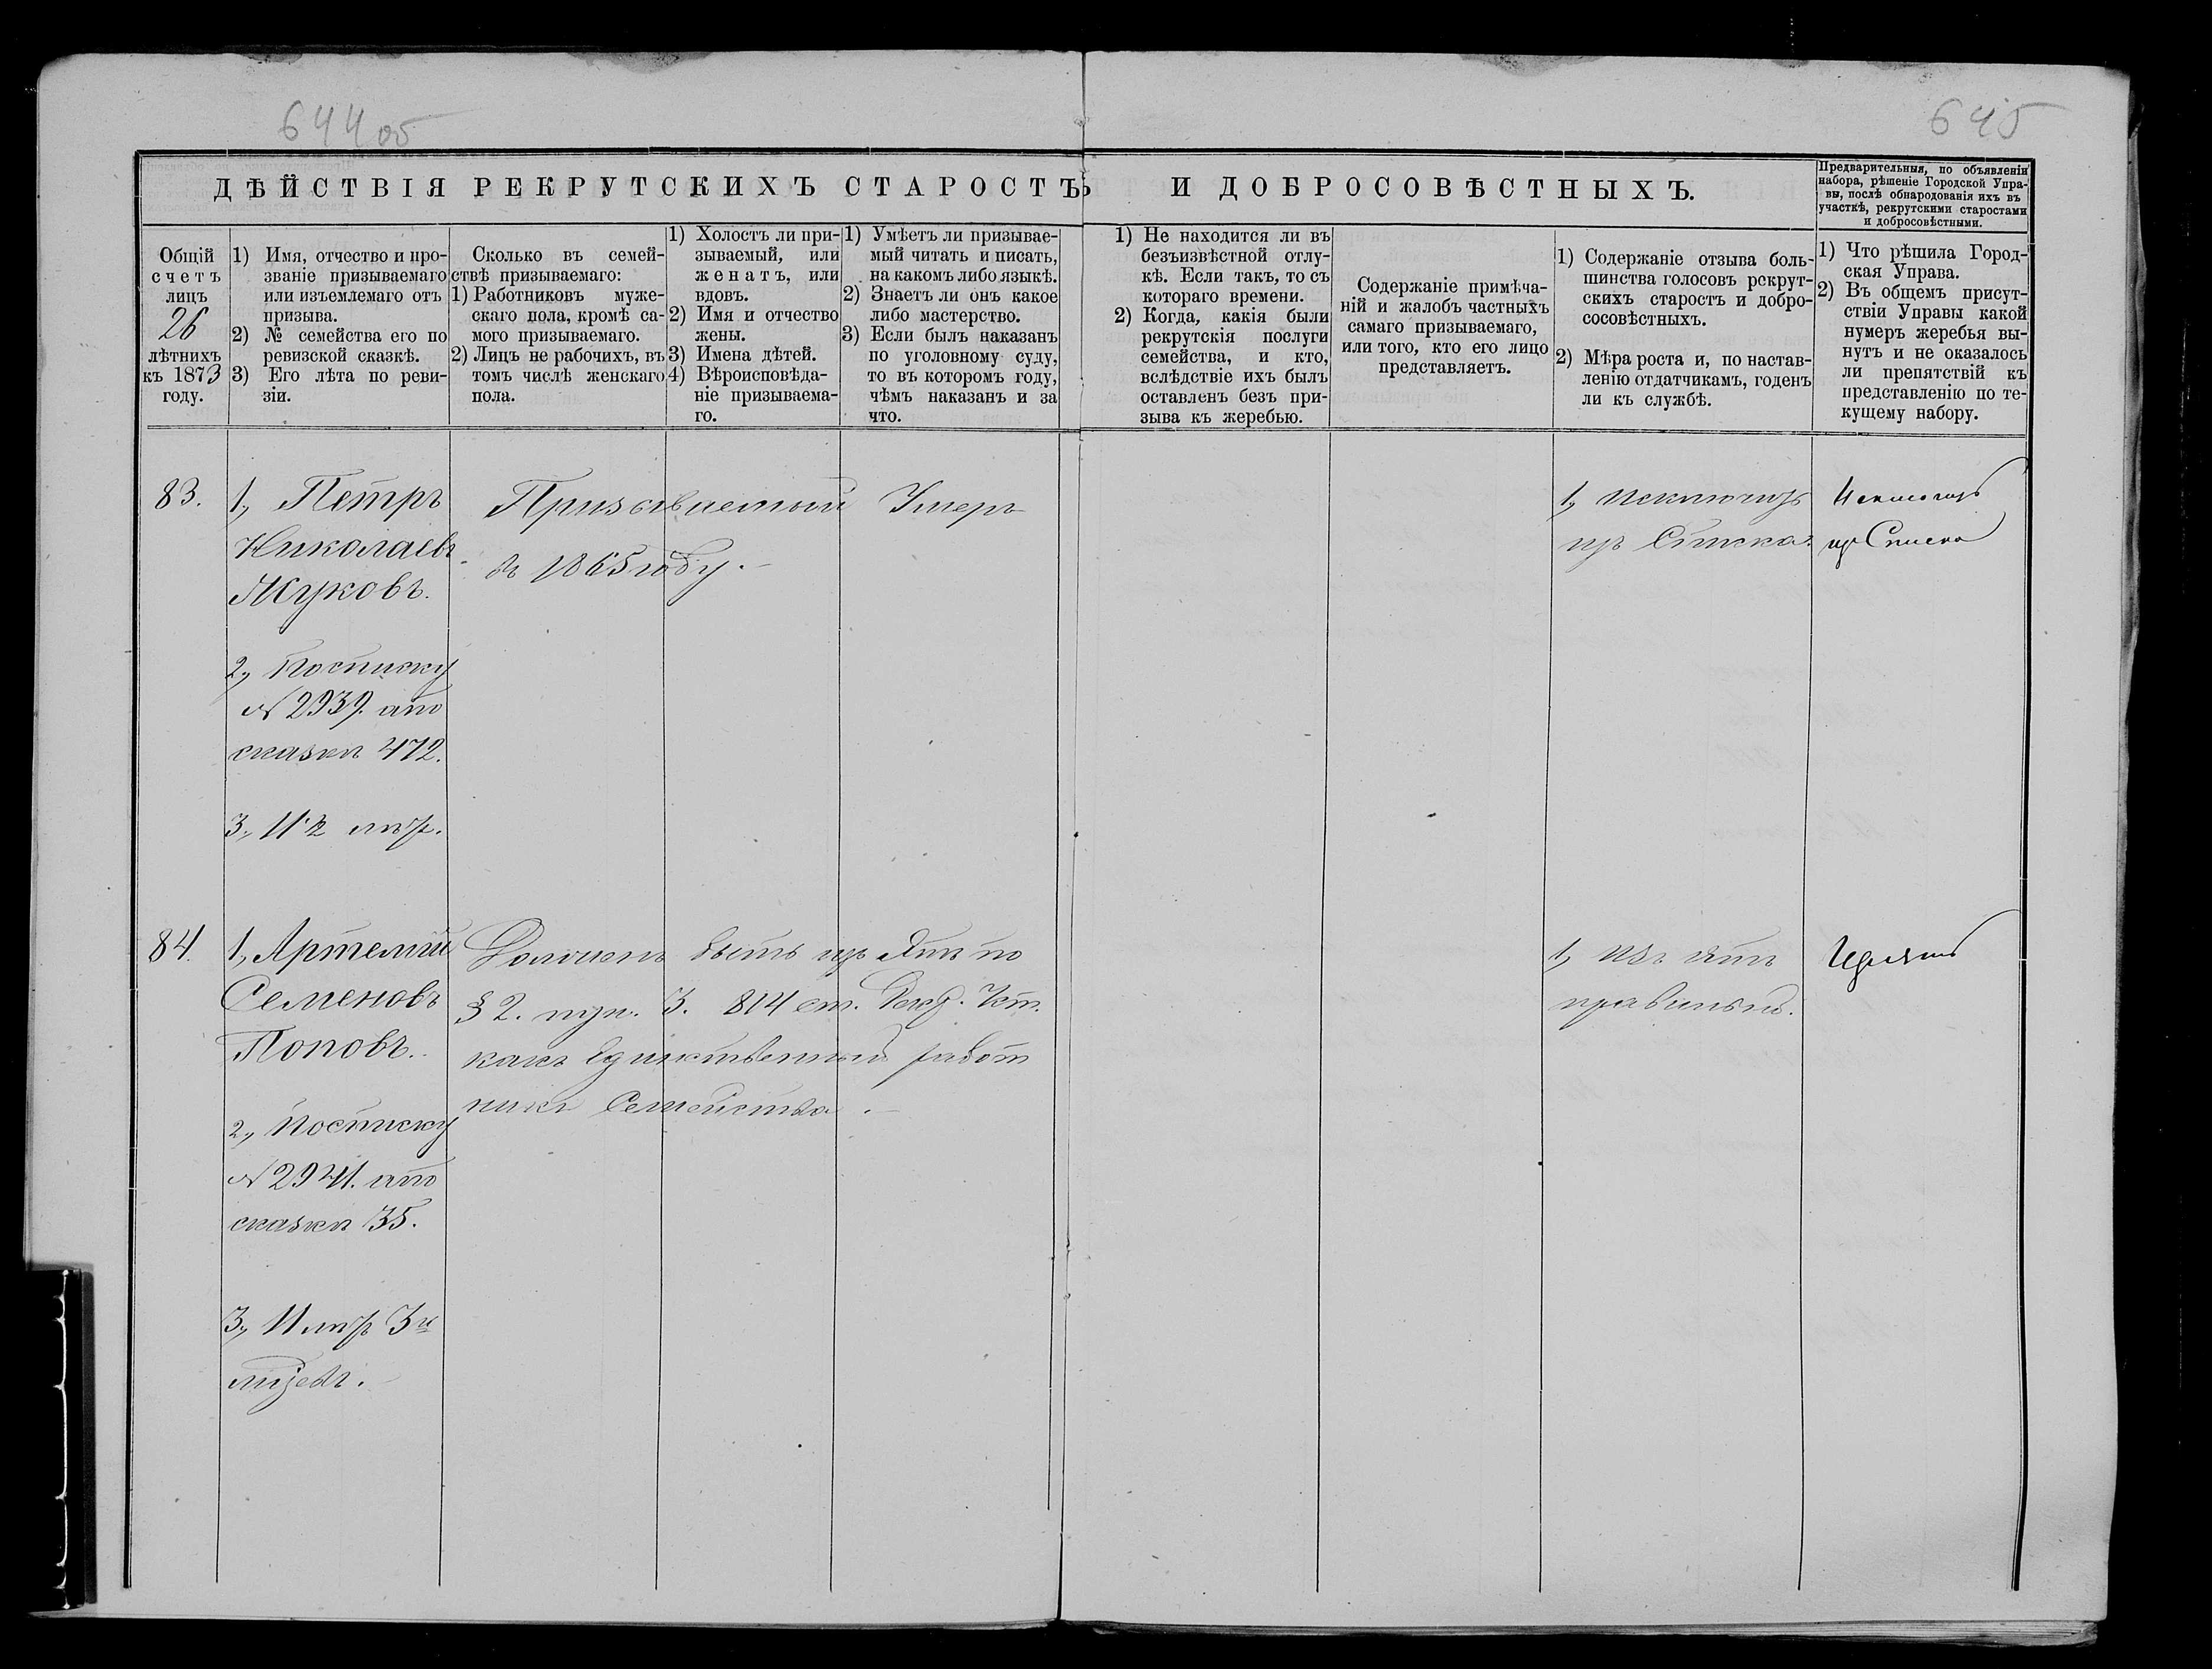 644об
645
ДѢЙСТВІЯ РЕКРУТСКИХЪ СТАРОСТЪ И ДОБРОСОВѢСТНЫХЪ.
Предварительныя, по объявленіи
набора, рѣшеніе Городской Упра-
вы, послѣ обнародованія ихъ въ
участкѣ, рекрутскими старостами
и добросовѣстными.
Общій
счетъ
лицъ
26
лѣтнихъ
къ 1873
году.
1) Имя, отчество и про-
званіе призываемаго
или изъемлемаго отъ
призыва.
2) № семейства его по
ревизской сказкѣ.
3) Его лѣта по реви-
зіи.
Сколько въ семей-
ствѣ призываемаго:
1) Работниковъ муже-
скаго пола, кромѣ са-
мого призываемаго.
2) Лицъ не рабочихъ, въ
томъ числѣ женскаго
пола.
1) Холостъ ли при-
зываемый, или
женатъ, или
вдовъ.
2) Имя и отчество
жены.
3) Имена дѣтей.
4) Вѣроисповѣда-
ніе призываема-
го.
1) Умѣетъ ли призывае-
мый читать и писать,
на какомъ либо языкѣ.
2) Знаетъ ли онъ какое
либо мастерство.
3) Если былъ наказанъ
по уголовному суду,
то въ которомъ году,
чѣмъ наказанъ и за
что.
1) Не находится ли въ
безъизвѣстной отлу-
кѣ. Если такъ, то съ
котораго времени.
2) Когда, какія были
рекрутскія послуги
семейства, и кто,
вслѣдствіе ихъ былъ
оставленъ безъ при-
зыва къ жеребью.
Содержаніе примѣча-
ній и жалобъ частныхъ
самаго призываемаго,
или того, кто его лицо
представляетъ.
1) Содержаніе отзыва боль-
шинства голосовъ рекрут-
скихъ старостъ и добро-
сосовѣстныхъ.
2) Мѣра роста и, по настав-
ленію отдатчикамъ, годенъ
ли къ службѣ.
1) Что рѣшила Город-
ская Управа.
2) Въ общемъ присут-
ствіи Управы какой
нумеръ жеребья вы-
нутъ и не оказалось
ли препятствій къ
представленію по те-
кущему набору.
83.
1, Петръ
Николаевъ
Жуковъ.
2, По списку
№ 2939. а по
сказкѣ 472.
3, 11½ лѣтъ.
Призываемый Умеръ
въ 1865 году.
1, Исключить
изъ Списка.
Исключить
изъ Списка
84.
1, Артемій
Семеновъ
Поповъ.
2, По списку
№ 2941. а по
сказкѣ 35.
3, 11 лѣтъ 3х
мѣсяц.
Долженъ быть изъятъ по
§ 2. пун. 3. 814 ст. Рекр. Уст.
какъ Единственный работ
никъ Семейства.
1, Изъятъ
правильно.
Изъять